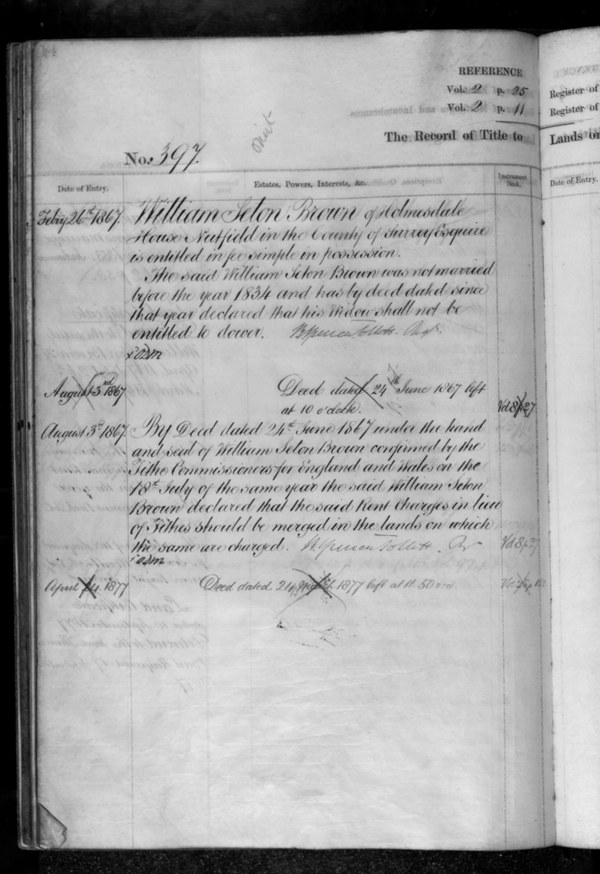 REFERENCE
Vol. 2 p. 25
Vol. 2 p. 11
The Record of Title to
No. 397.
Date of Entry.
Estates, Powers, Interests, &c.
Instrument
Register of
Register of
Lands or
Date of Entry.
Febry 26th 1867.
William Seton Brown of Holmesdale
House Nutfield in the County of Surrey Esquire
is entitled in fee simple in possession.
The said William Seton Brown was not married
before the year 1834 and has by deed dated since
that year declared that his Widow shall not be
entitled to dower.
August 3rd 1867
Deed dated 24th June 1867 left
at 10 o'clock.
Vol 8 p 27
August 3rd 1867
By Deed dated 24th June 1867 under the hand
and seal of William Seton Brown confirmed by the
Tithe Commissioners for England and Wales on the
18th July of the same year the said William Seton
Brown declared that the said Rent Charges in lieu
of Tithes should be merged in the lands on which
the same are charged.
Vol 8 p 27
April 24. 1877
Deed dated 24 1877 left at 11.50